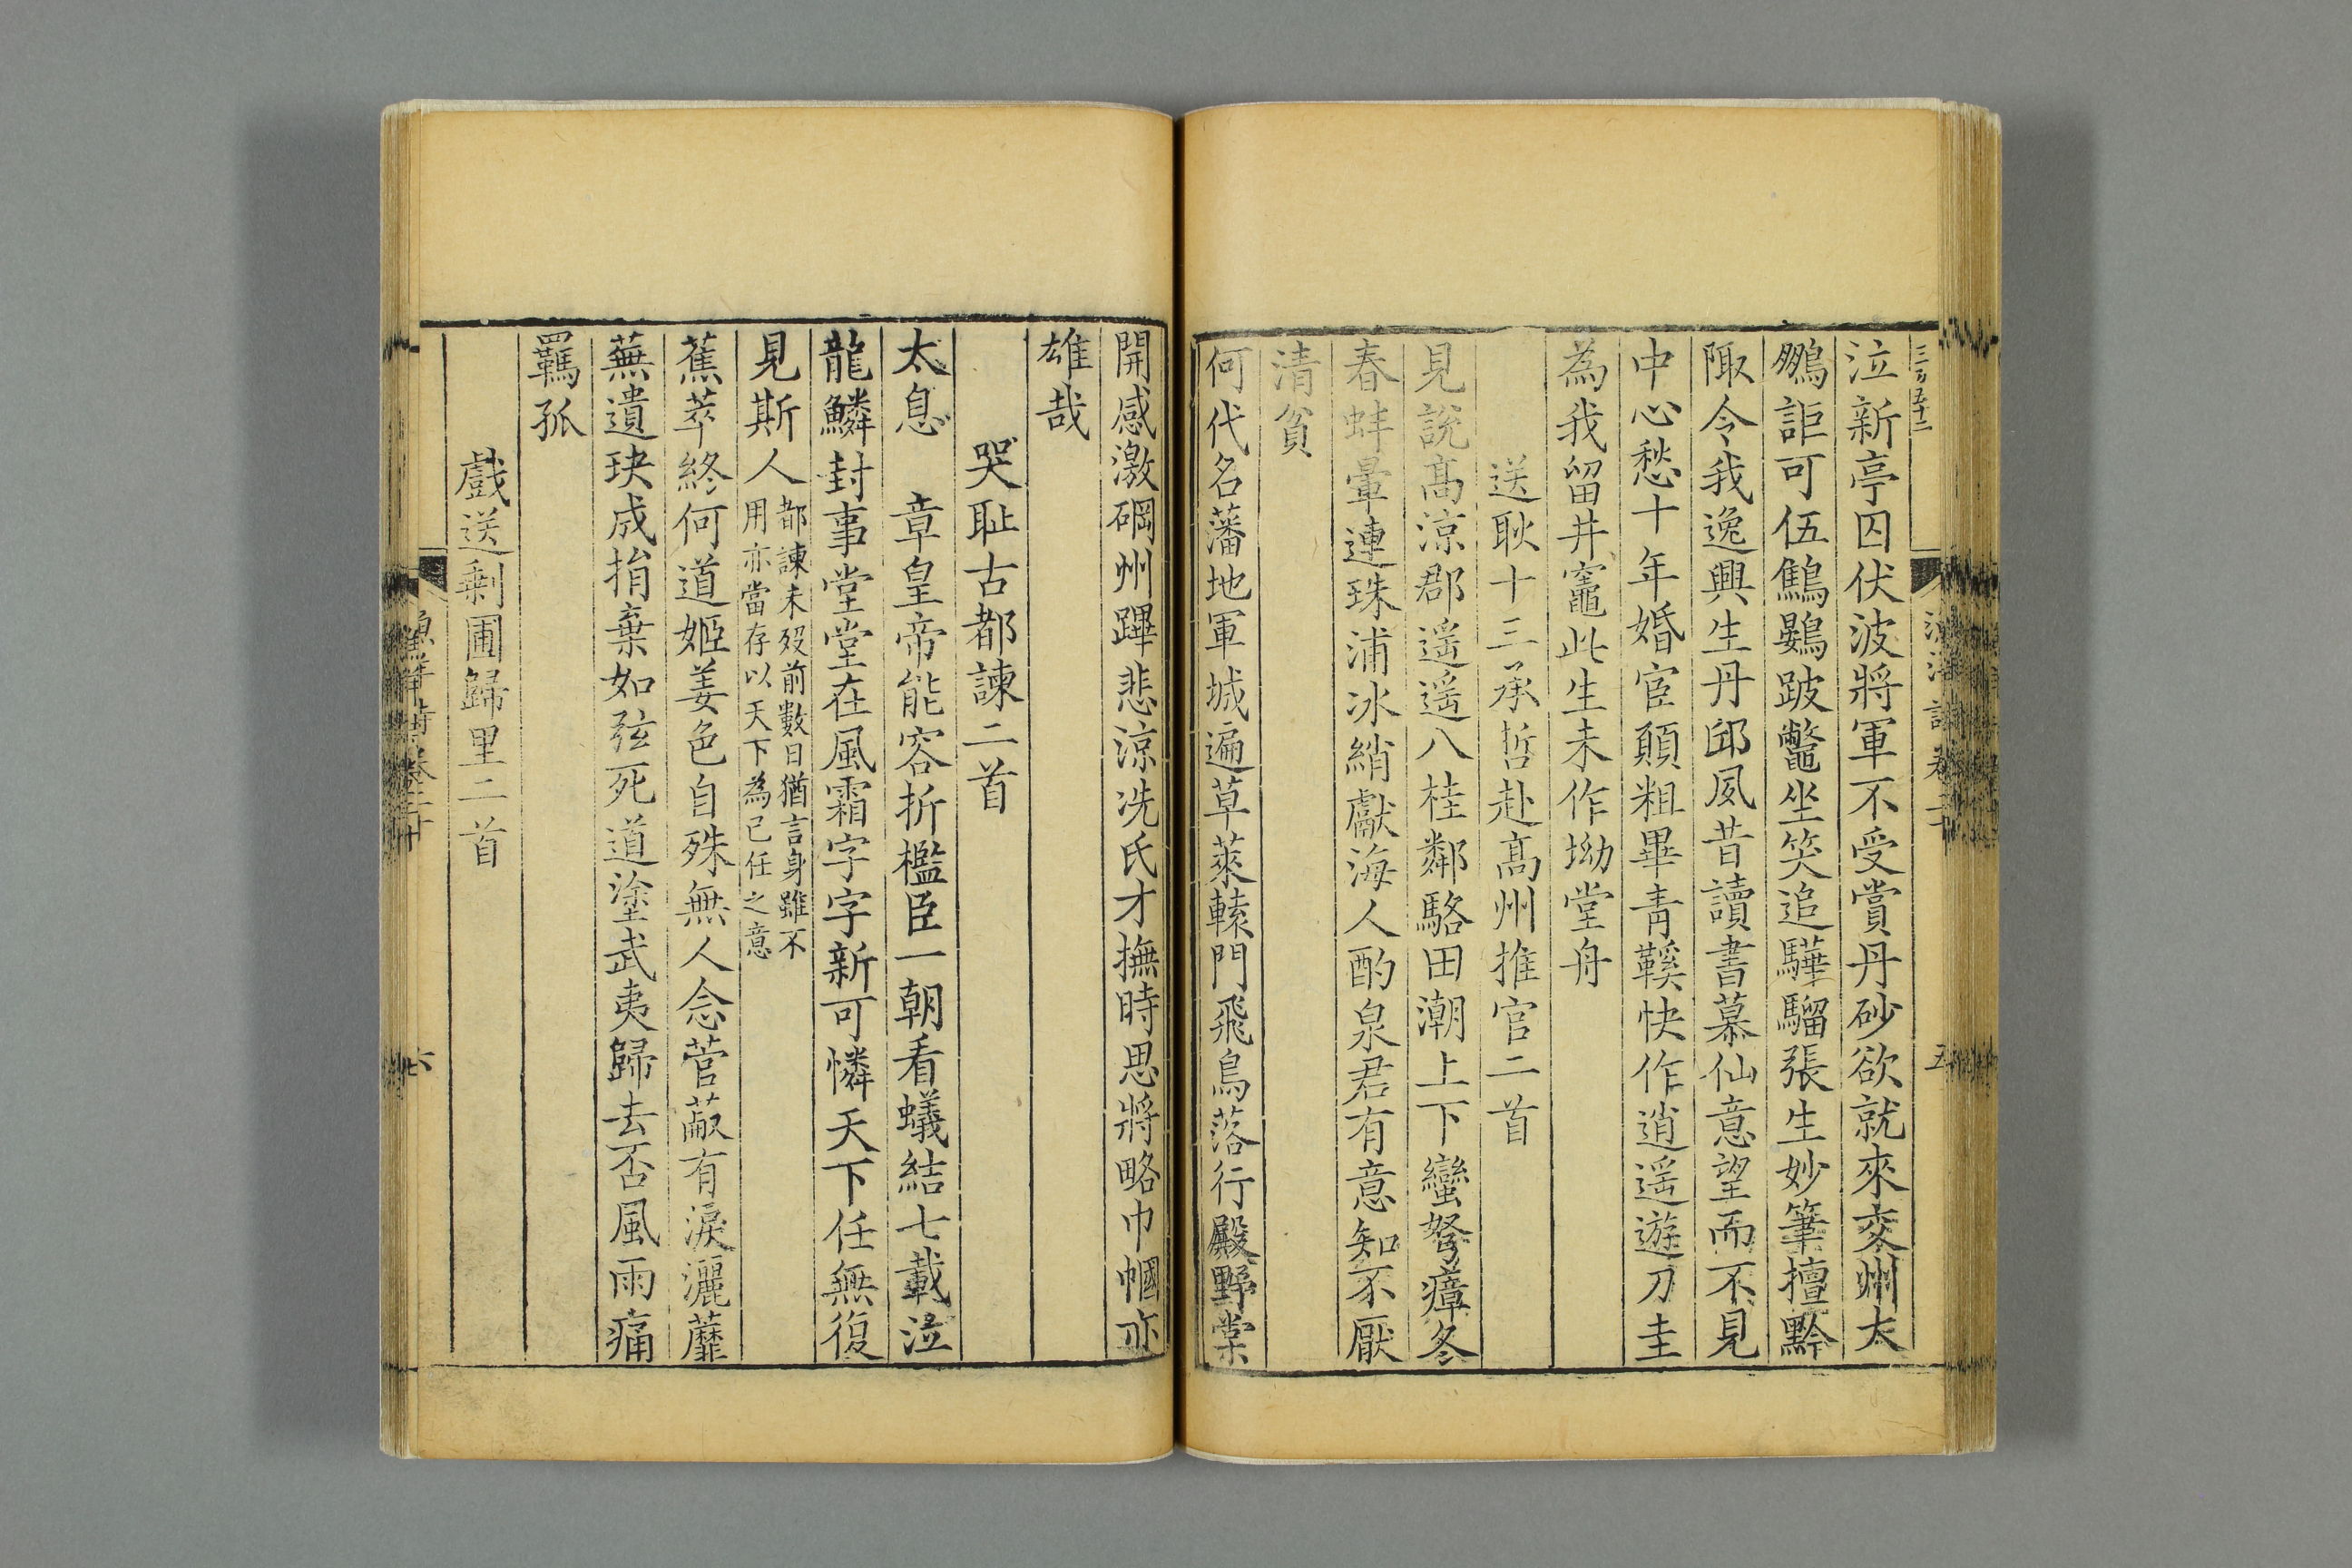 三百五十二
泣新亭囚伏波將軍不受賞丹砂欲就來交州太
鵬詎可伍鷦鷃跛鼈坐笑追驊騮張生妙筆擅黔
陬令我逸興生丹邱夙昔讀書慕仙意望而不見
中心愁十年婚宦願粗畢靑鞵快作逍遥遊刀圭
為我留井竈此生未作坳堂舟
送耿十三承哲赴髙州推官二首
見説髙凉郡遥遥八桂鄰駱田潮上下蠻弩瘴冬
春蚌暈連珠浦冰綃獻海人酌泉君有意知不厭
清貧
何代名藩地軍城遍草萊轅門飛鳥落行殿野棠
開感激碙州蹕悲涼冼氏才撫時思將略巾幗亦
雄哉
哭耻古都諫二首
太息 章皇帝能容折檻臣一朝看蟻結七載泣
龍鱗封事堂堂在風霜字字新可憐天下任無復
見斯人都諫未歿前數日猶言身雖不用亦當存以天下為已任之意
蕉萃終何道姬姜色自殊無人念菅蒯有淚灑蘼
蕪遺玦成捐棄如弦死道塗武夷歸去否風雨痛
羈孤
戲送剩圃歸里二首
漁洋詩卷二十
六